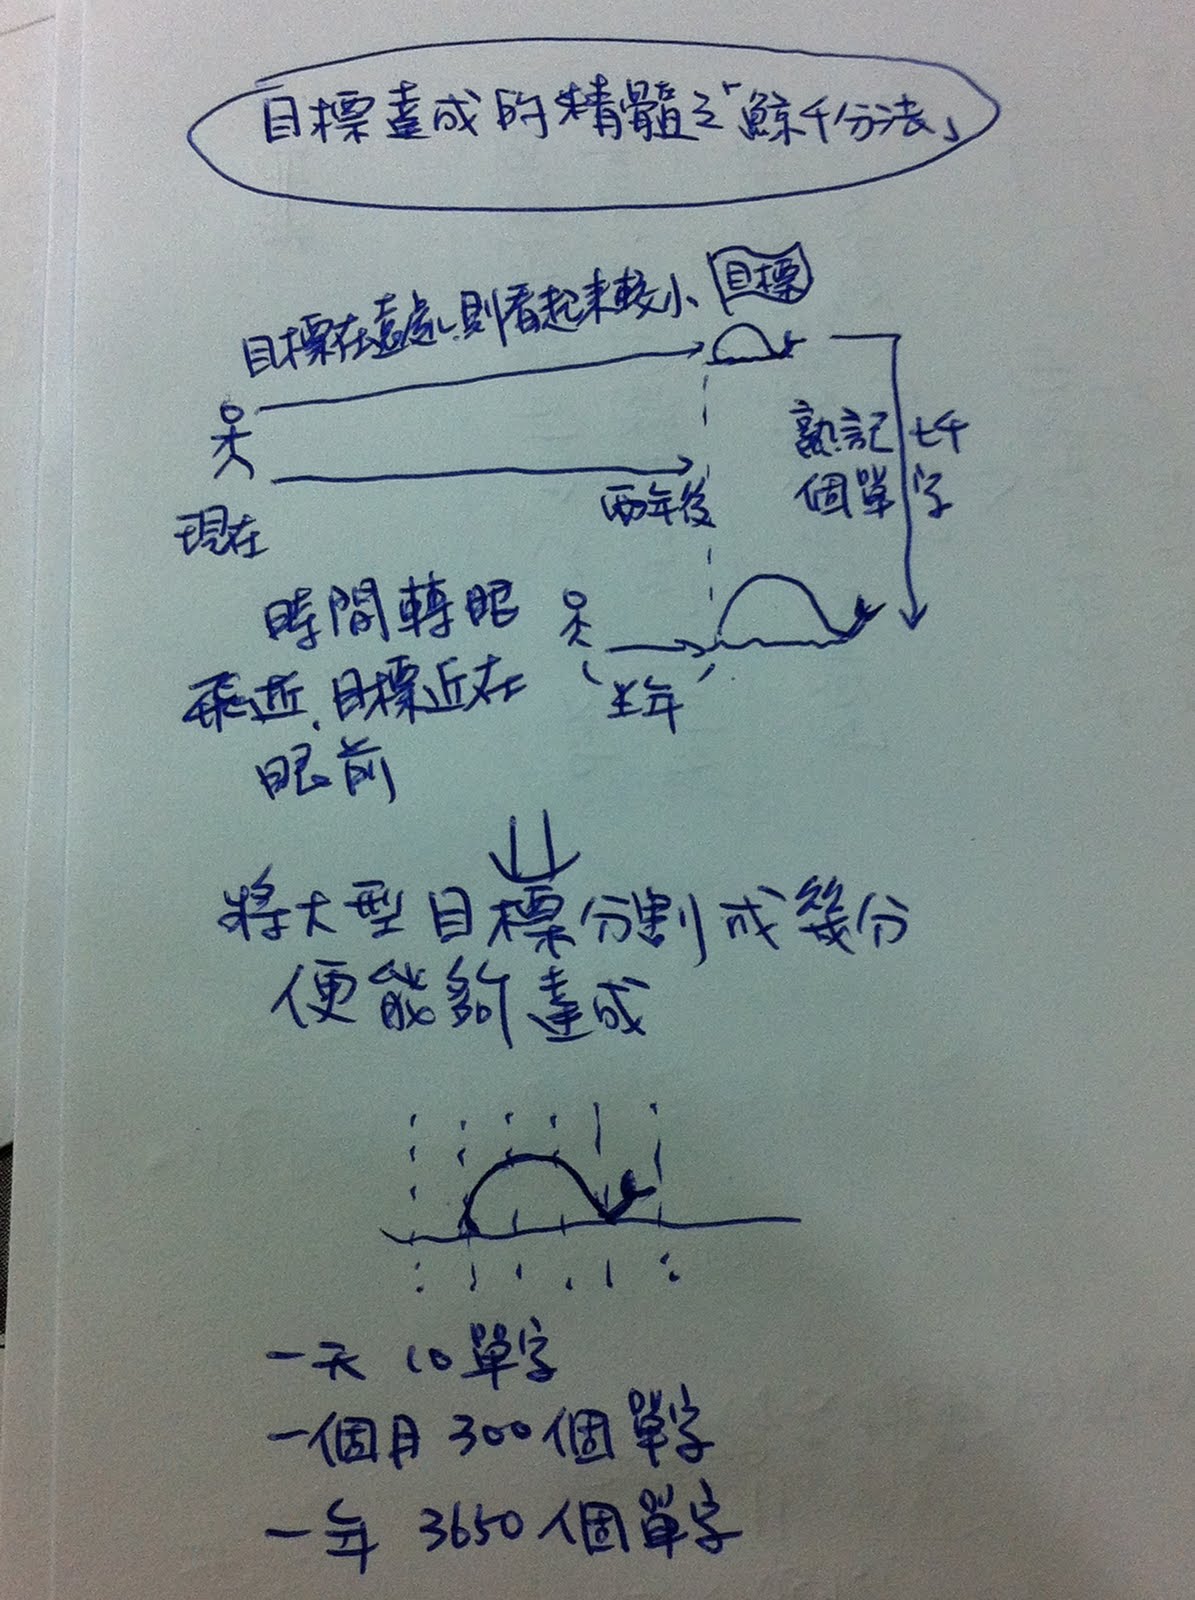 目標達成的精髓之「鯨千分法」
目標在遠處,則看起來較小、
目標
熟記七千
個單字
兩年後
現在
時間轉眼
飛逝,目標近在
眼前
半年
將大型目標分割成幾分
便能夠達成
一天 10單字
一個月 300個單字
一年 3650個單字